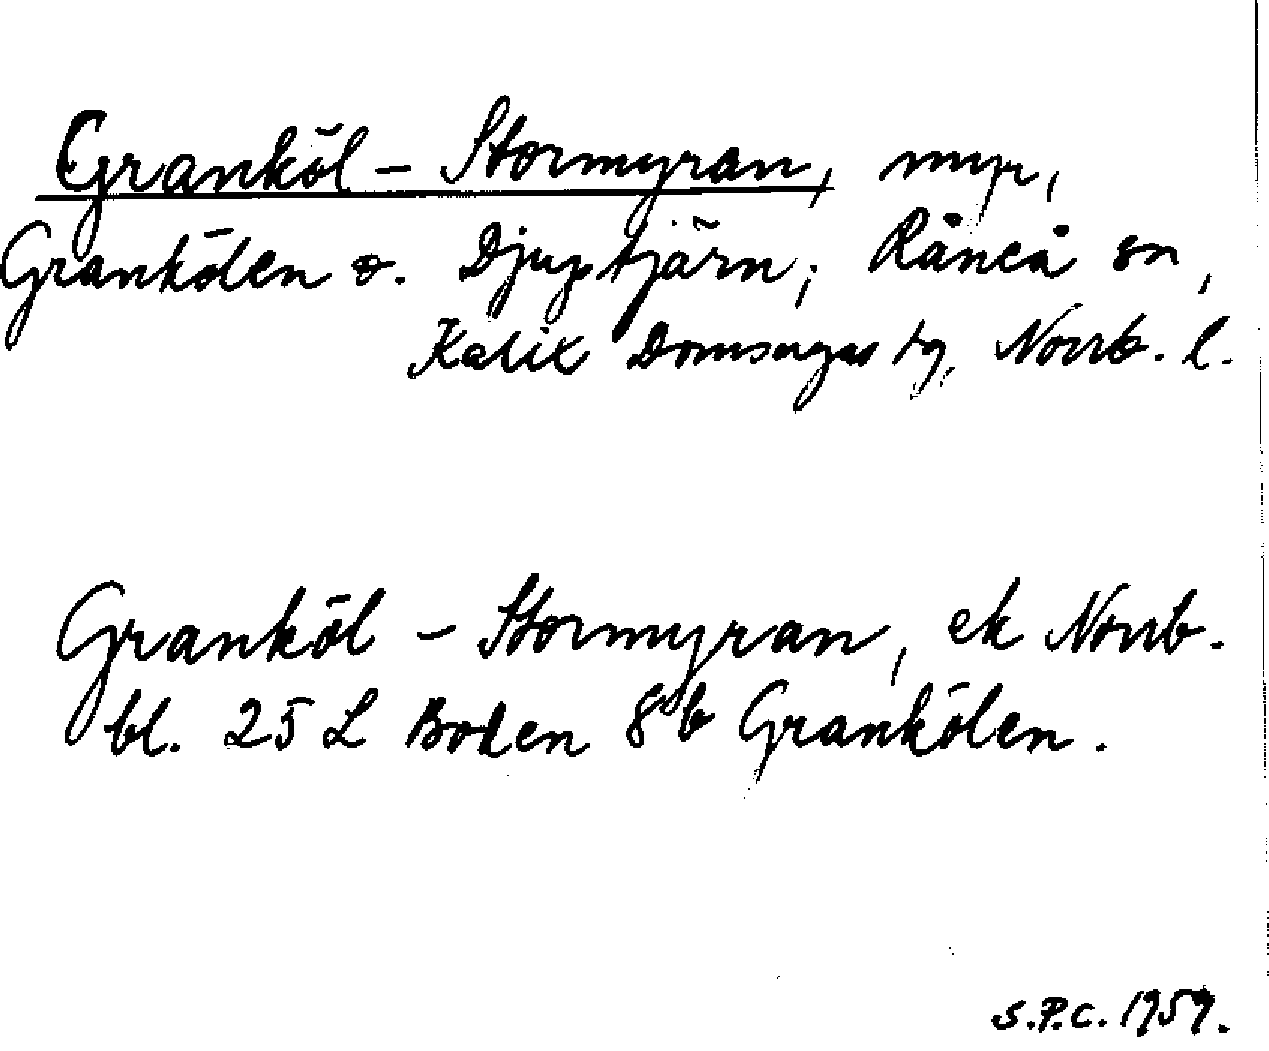 Granköl - Stormyran, myr,
Grankölen o. Djuptjärn; Råneå sn,
Kalix Domsagas tg, Norrb. l.
Granköl - Stormyran, ek Norrb.
bl. 25 L Boden 8b Grankölen.
S.P.C. 1959.